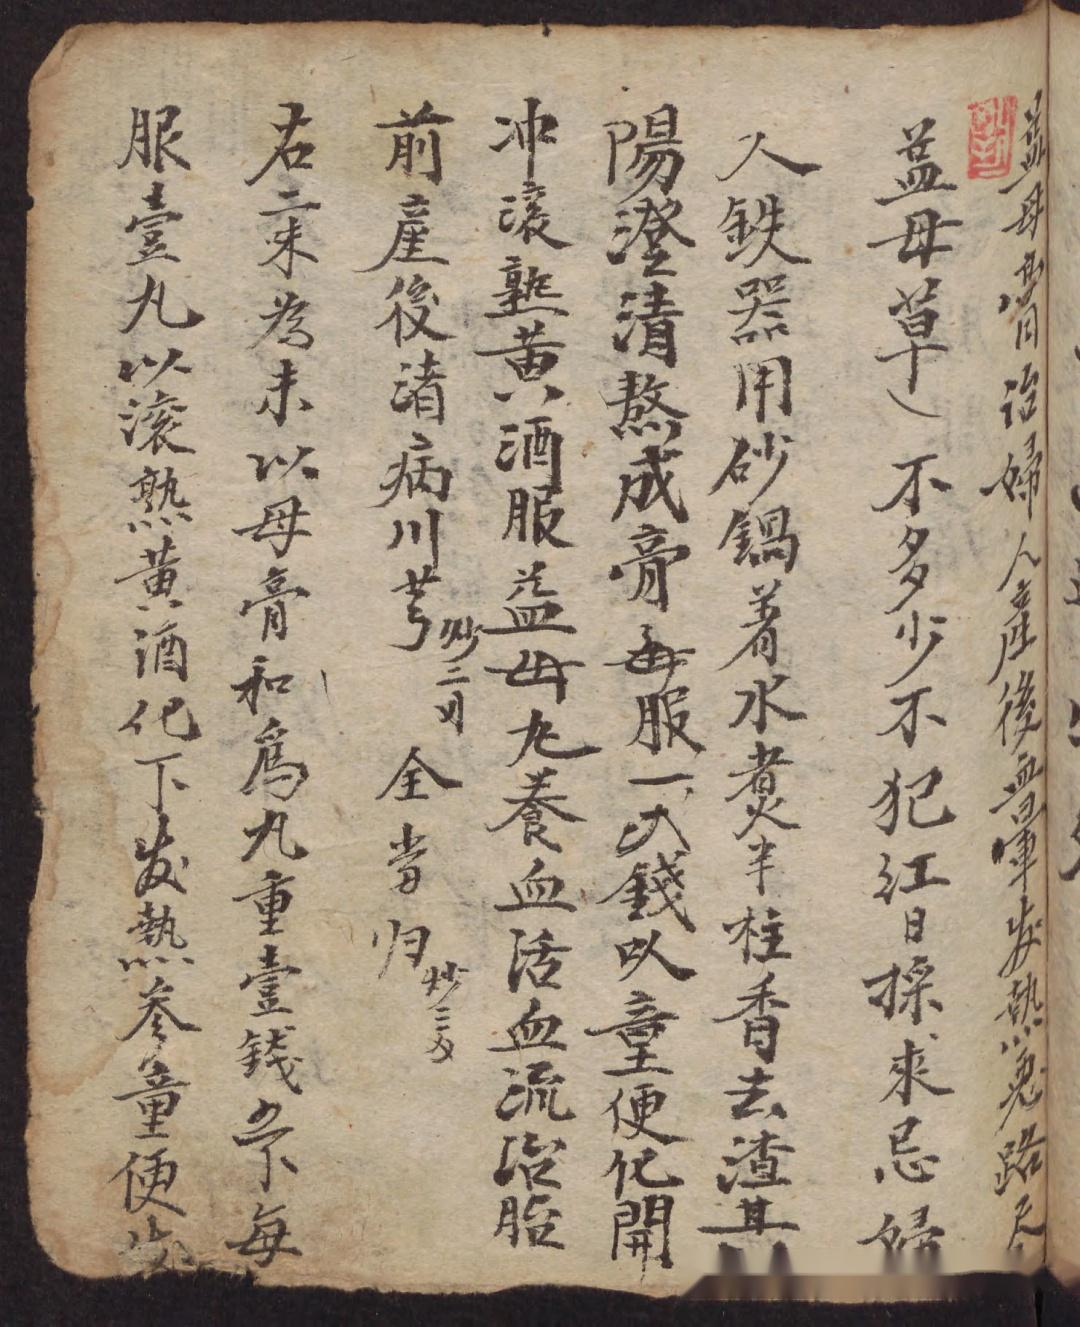 益母膏治婦人產後血暈发熱惡路不
益母草不多少不犯江日採來忌婦
人鉄器用砂鍋著水煮半柱香去渣其
陽澄清熬成膏每服一次錢以童便化開
冲滚熟黄酒服益母丸養血活血流治胎
前產後渚病川芎炒三 全當归炒三
右二末為末以母膏和為丸重壹錢 每
服壹丸以滚熟黄酒化下发熱参童便